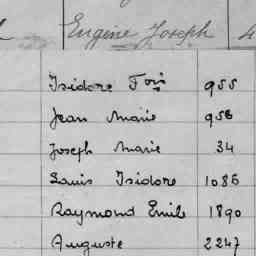 Eugène Joseph 4
Isidore Fois 955
Jean Marie 956
Joseph Marie 34
Louis Isidore 1086
Raymond Emile 1890
Auguste 2247